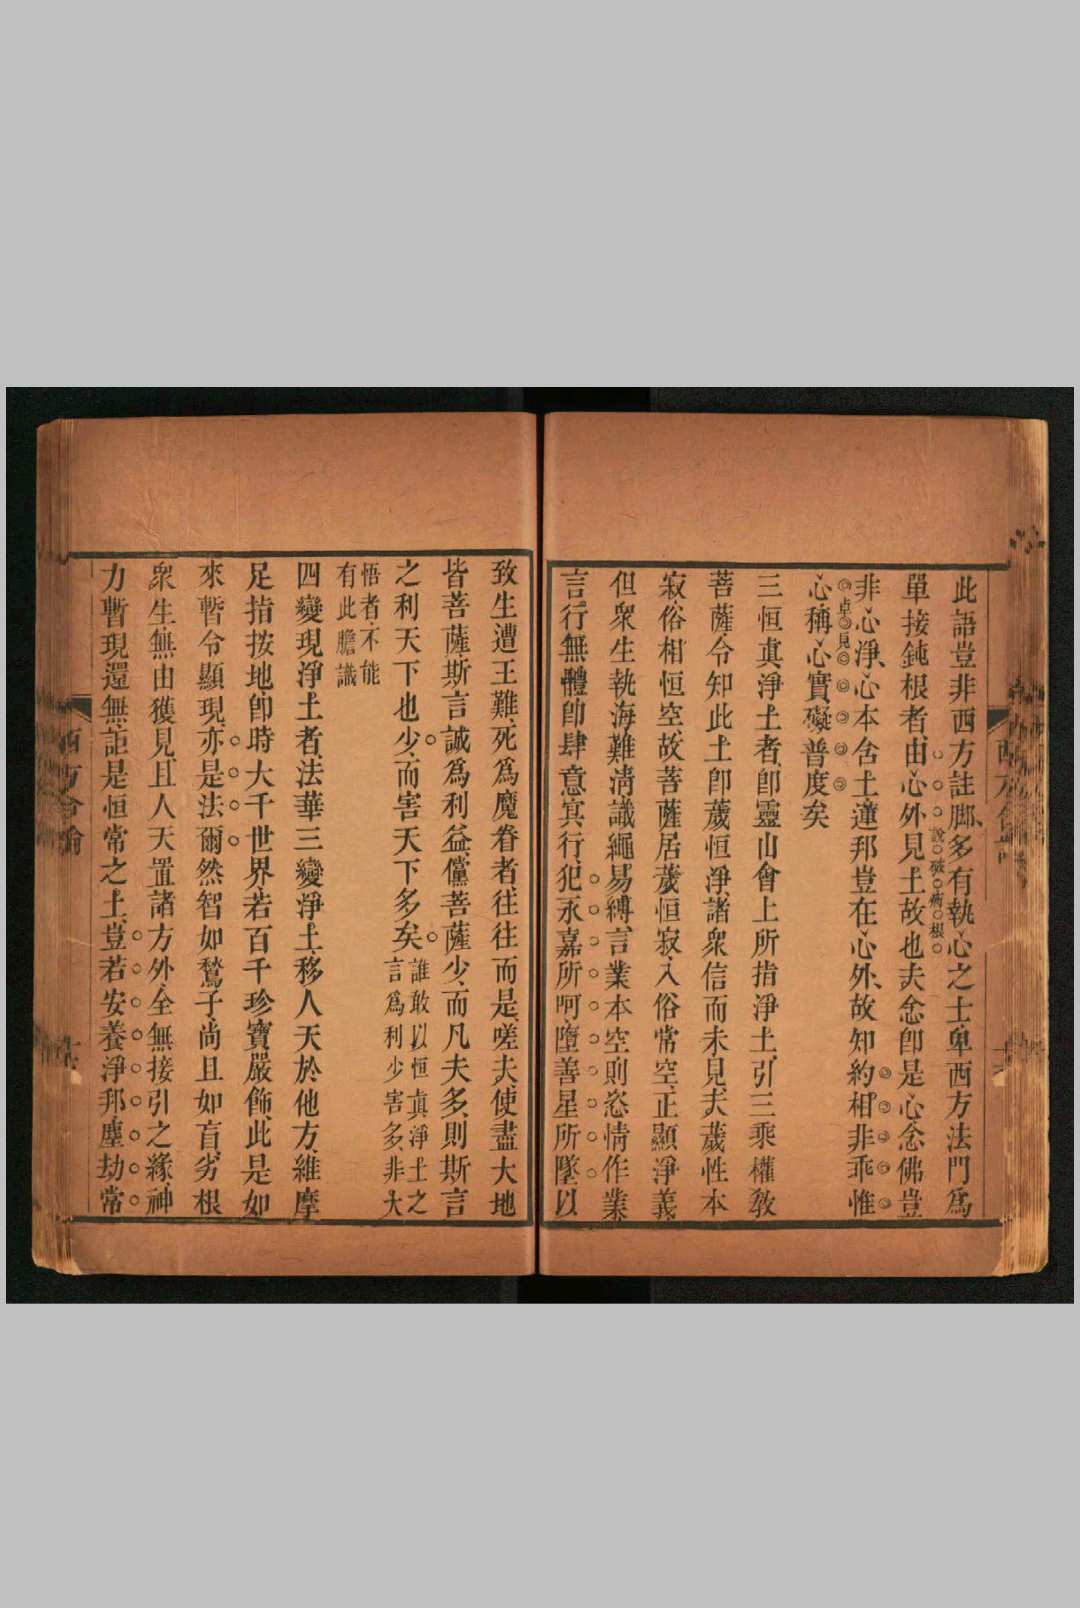 此語豈非西方註脚多有執心之士卑西方法門爲
說破病根
單接鈍根者由心外見土故也夫念卽是心念佛豈
非心淨心本含土蓮邦豈在心外故知約相非乖惟
卓見
心稱心實礙普度矣
三恒眞淨土者卽靈山會上所指淨土引三乘權敎
菩薩令知此土卽薉恒淨諸衆信而未見夫薉性本
寂俗相恒空故菩薩居薉恒寂入俗常空正顯淨義
但衆生執海難淸識繩易縛言業本空則恣情作業
言行無體卽肆意冥行犯永嘉所呵墮善星所墜以
致生遭王難死爲魔眷者往往而是嗟夫使盡大地
皆菩薩斯言誠爲利益儻菩薩少而凡夫多則斯言
之利天下也少而害天下多矣
誰敢以恒眞淨土之
言爲利少害多非大
悟者不能
有此膽識
四變現淨土者法華三變淨土移人天於他方維摩
足指按地卽時大千世界若百千珍寶嚴飾此是如
來暫令顯現亦是法爾然智如鶖子尚且如盲劣根
衆生無由獲見且人天置諸方外全無接引之緣神
力暫現還無詎是恒常之土豈若安養淨邦塵劫常
西方合論